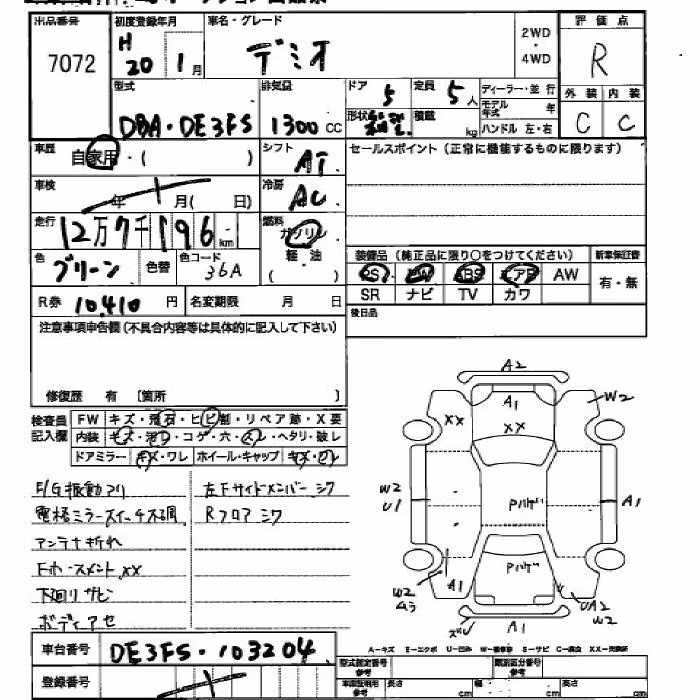 出品番号 初度登録年月 車名・グレード 評価点
7072 H 20 1月 デミオ 2WD・4WD R
型式 排気量 ドア 定員 ディーラー・並行 外装 内装
DBA・DE3FS 1300cc 5 5人 モデル年式 年 C C
形状 積載 kg ハンドル 左・右
車歴 自家用・( ) シフト AT セールスポイント(正常に機能するものに限ります)
車検 年 月( 日) 冷房 AC
走行 12万7千196km 燃料 ガソリン
軽・油
( )
色 グリーン 色替 色コード 36A
装備品(純正品に限り○をつけてください) 新車保証書
PS PW ABS エアB AW 有・無
SR ナビ TV カワ
R券 10,410円 名変期限 月 日
後日品
注意事項申告欄(不具合内容等は具体的に記入して下さい)
修復歴 有〔箇所 〕
検査員記入欄 FW キズ・飛石・ヒビ割・リペア跡・X要
内装 キズ・汚レ・コゲ・穴・スレ・ヘタリ・破レ
ドアミラー キズ・ワレ ホイール・キャップ キズ・ワレ
E/G振動アリ 左Fサイドメンバーシワ
電格ミラースイッチ不調 Rフロアシワ
アンテナ折れ
下廻リサビ
ボディアセ
A2
A1
XX
XX
W2
W2
U1
A1
Pハゲ
Pハゲ
A1
W2
UA2
W2
A1
A-キズ E-エクボ U-凹み W-補修跡 S-サビ C-腐食 XX-交換済
車台番号 DE3FS・103204
登録番号
型式指定番号 類別区分番号
参考 参考
車庫証明用参考 長さ cm 幅 cm 高さ cm